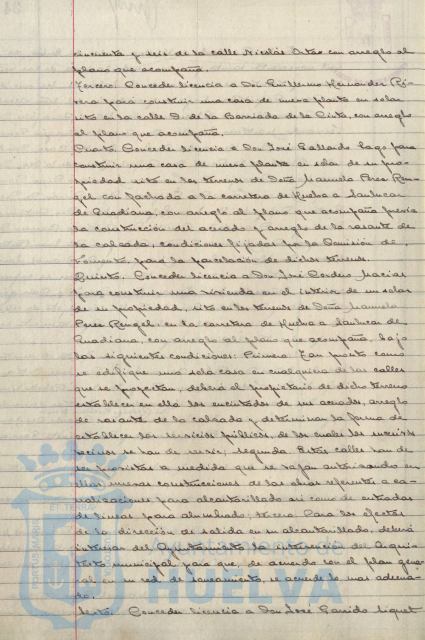 cincuenta y seis de la calle Nicolás Ortas con arreglo al
plano que acompaña.
Tercero. Conceder licencia a Don Guillermo Hernandez Ri-
vera para construir una casa de nueva planta en solar
sito en la calle D. de la Barriada de la Cinta, con arreglo
al plano que acompaña.
Cuarto. Conceder licencia a Don José Gallardo Lago para
construir una casa de nueva planta en solar de su pro-
piedad sito en los terrenos de Doña Manuela Perez Ren-
gel con fachada a la carretera de Huelva a Sanlucar
de Guadiana, con arreglo al plano que acompaña previa
la construcción del acerado y arreglo de la rasante de
la calzada, condiciones fijadas por la Comisión de
Fomento para la parcelación de dichos terrenos.
Quinto. Conceder licencia a Don José Cordero Macias
para construir una vivienda en el interior de un solar
de su propiedad, sito en los terrenos de Doña Manuela
Perez Rengel en la carretera de Huelva a Sanlucar de
Guadiana, con arreglo al plano que acompaña, bajo
las siguientes condiciones: Primera. Tan pronto como
se edifique una sola casa en cualquiera de las calles
que se proyectan, deberá el propietario de dicho terreno
establecer en ella los encintados de sus acerados, arreglo
de rasante de la calzada y determinar la forma de
establecer los servicios públicos, de los cuales los nuevos
vecinos se han de servir; segunda. Estas calles han de
ser provistas a medida que se vayan autorizando en
ellas nuevas construcciones de las obras referentes a ca-
nalizaciones para alcantarillado asi como de entradas
de lineas para alumbrado; tercera. Para los efectos
de la dirección de salida en su alcantarillado, deberá
interesar del Ayuntamiento la intervención del Arqui-
tecto municipal para que, de acuerdo con el plan gene-
ral en su red de saneamiento, se acuerde lo mas adecua-
do.
Sexto. Conceder licencia a Don José Garrido Miguel
PORTUS MARIS ET TERRAE
HUELVA